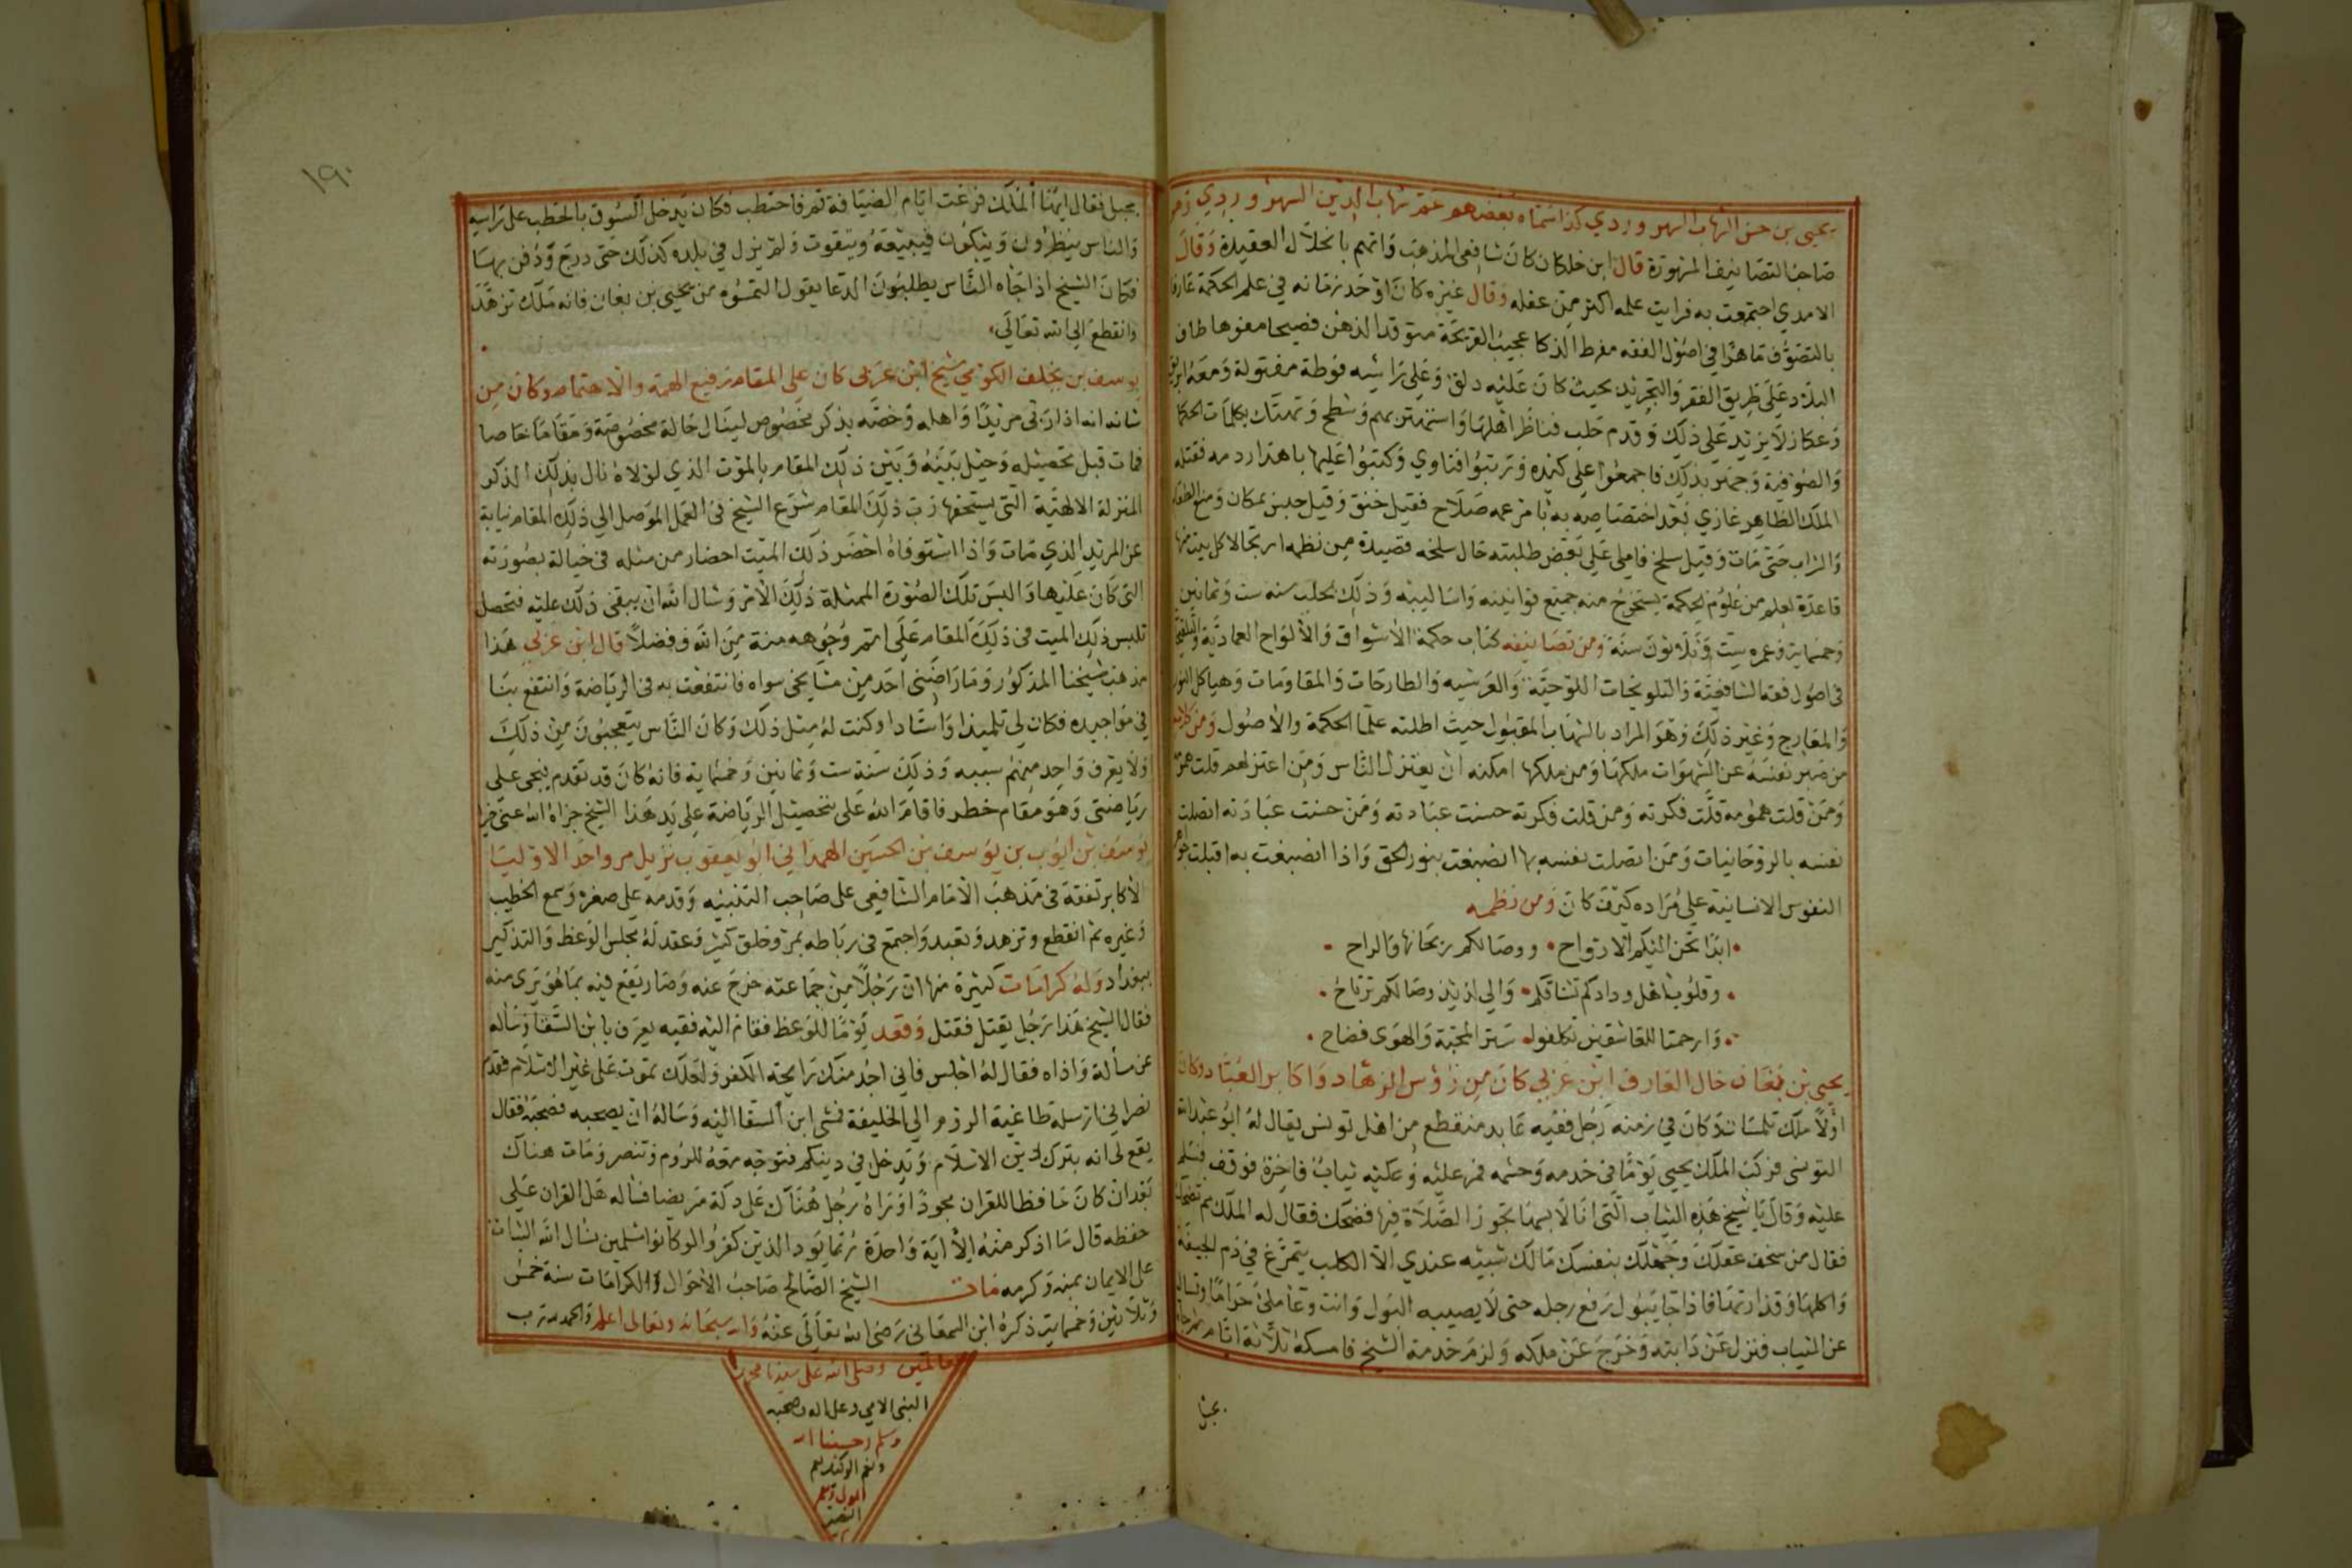 يحيى بن حسن الشهاب السهروردي كذا سماه بعضهم عمر شهاب الدين السهروردي
صاحب التصانيف المشهورة قال ابن خلكان كان شافعي المذهب واتهم بانحلال العقيدة وقال
الامدي اجتمعت به فرايت علمه اكثر من عقله وقال غيره كان اوحد زمانه في علم الحكمة عارفا
بالتصوف ماهرا في اصول الفقه مفرط الذكا عجيب القريحة متوقد الذهن فصيحا مفوها طاف
البلاد على طريق الفقر والتجريد بحيث كان عليه دلق وعلى راسه فوطة مفتولة ومعه ابريق
وعكاز لا يزيد على ذلك وقدم حلب فناظر اهلها واستهتر بهم وشطح وتهتك بكلمات الحكما
والصوفية وجهر بذلك فاجمعوا على كيده ورتبوا فتاوي وكتبوا عليها باهدار دمه فقتله
الملك الظاهر غازي بعد اختصاصه به بامر عمه صلاح فقيل خنق وقيل حبس بمكان ومنع الطعام
والشراب حتى مات وقيل سلخ فاملى على بعض طلبته حال سلخه قصيدة من نظمه ارتجالا كل بيت منها
قاعدة لعلم من علوم الحكمة يستخرج منه جميع قوانينه واساليبه وذلك بحلب سنه ست وثمانين
وخمسماية وعمره ست وثلاثون سنة ومن تصانيفه كتاب حكمة الاشواق والالواح العمادية والتنقيحات
في اصول فقه الشافعية والتلويحات اللوحية والعرشيه والطارحات والمقاومات وهياكل النور
والمعارج وغير ذلك وهو المراد بالشهاب المقبول حيث اطلته علما الحكمة والاصول ومن كلامه
من صبر نفسه عن الشهوات ملكها ومن ملكها امكنه ان يعتزل الناس ومن اعتزلهم قلت همومه
ومن قلت همومه قلت فكرته ومن قلت فكرته حسنت عبادته ومن حسنت عبادته اتصلت
نفسه بالروحانيات ومن اتصلت نفسه بها انصبغت بنور الحق واذا انصبغت به اقبلت
النفوس الانسانية على مراده كيف كان ومن نظمه
ابدا تحن اليكم الارواح ووصالكم ريحانها والراح
وقلوب اهل ودادكم تشتاقكم والى لذيذ وصالكم ترتاح
وارحمتا للعاشقين تكلفوا ستر المحبة والهوى فضاح
يحيى بن يغان خال العارف ابن عربي كان من رؤس الزهاد واكابر العباد وكان
اولا ملك تلمسان وكان في زمنه رجل فقيه عابد منقطع من اهل تونس يقال له ابو عبد الله
التونسي فركب الملك يحيي يوما في خدمه وحشمه فمر عليه وعليه ثياب فاخرة فوقف فسلم
عليه وقال يا شيخ هذه الثياب التي انا لابسها تجوز الصلاة فيها فضحك فقال له الملك مم تضحك
فقال من سخف عقلك وجهلك بنفسك مالك شبيه عندي الا الكلب يتمرغ في دم الجيفة
واكلها وقذارتها فاذا جا يبول رفع رجله حتى لا يصيبه البول وانت وعا ملئ حراما وتسال
عن الثياب فنزل عن دابته وخرج عن ملكه ولزم خدمة الشيخ فامسكه ثلاثة ايام
بحبل
١٩٠
بحبل فقال ايها الملك فرغت ايام الضيافة قم فاحتطب فكان يدخل السوق بالحطب على راسه
والناس ينظرون ويبكون فيبيعه ويتقوت ولم يزل في بلده كذلك حتى درج ودفن بها
فكان الشيخ اذا جاه الناس يطلبون الدعا يقول التمسوه من يحيى بن يغان فانه ملك تزهد
وانقطع الى الله تعالى
يوسف بن يخلف الكومي شيخ ابن عربي كان على المقام رفيع الهمة والاهتمام وكان من
شانه انه اذا ربى مريدا واهله وخصه بذكر مخصوص لينال حالة مخصوصة ومقاما خاصا
فمات قبل تحصيله وحيل بينه وبين ذلك المقام بالموت الذي لولاه نال بذلك الذكر
المنزلة الالهية التي يستحقها رب ذلك المقام شرع الشيخ في العمل الموصل الى ذلك المقام نيابة
عن المريد الذي مات واذا استوفاه احضر ذلك الميت احضار من مثله في خياله بصورته
التي كان عليها والبس تلك الصورة الممثلة ذلك الامر وسال الله ان يبقى ذلك عليه فتحصل
تلبس ذلك الميت في ذلك المقام على اتم وجوهه منة من الله وفضلا قال ابن عربي هذا
مذهب شيخنا المذكور وما راضني احد من مشايخي سواه فانتفعت به في الرياضة وانتفع بنا
في مواجيده فكان لي تلميذا واستادا وكنت له مثل ذلك وكان الناس يتعجبون من ذلك
ولا يعرف واحد منهم سببه وذلك سنة ست وثمانين وخمسماية فانه كان قد تقدم فتحي على
رياضتي وهو مقام خطر فاقام الله على تحصيل الرياضة على يد هذا الشيخ جزاه الله عني خيرا
يوسف بن ايوب بن يوسف بن الحسين الهمداني ابو يعقوب نزيل مرو احد الاوليا
الاكابر تفقه في مذهب الامام الشافعي على صاحب التنبيه وقدمه على صغره وسمع الخطيب
وغيره ثم انقطع وتزهد وتعبد واجتمع في رباطه بمرو خلق كثير وعقد له مجلس الوعظ والتذكير
ببغداد وله كرامات كثيرة منها ان رجلا من جماعته خرج عنه وصار يقع فيه بما هو بري منه
فقال الشيخ هذا رجل يقتل فقتل وقعد يوما للوعظ فقام اليه فقيه يعرف بابن السقا وساله
عن مسالة واذاه فقال له اجلس فاني اجد منك رايحة الكفر ولعلك تموت على غير الاسلام فقدم
نصراني ارسله طاغية الروم الى الخليفة فمشى ابن السقا اليه وساله ان يصحبه فصحبه فقال
يقع لي انه يترك دين الاسلام ويدخل في دينكم فتوجه معه للروم وتنصر ومات هناك
بعد ان كان حافظا للقران مجودا وراه رجل هناك على دكة مريضا فساله هل القران على
حفظه قال ما اذكر منه الا اية واحدة ربما يود الذين كفروا لو كانوا مسلمين نسال الله الثبات
على الايمان بمنه وكرمه مات الشيخ الصالح صاحب الاحوال والكرامات سنة خمس
وثلاثين وخمسماية ذكره ابن السمعاني رضي الله تعالى عنه والله سبحانه وتعالى اعلم والحمد لله رب
العالمين وصلى الله على سيدنا محمد
النبي الامي وعلى اله وصحبه
وسلم وحسبنا الله
ونعم الوكيل نعم
المولى ونعم
النصير